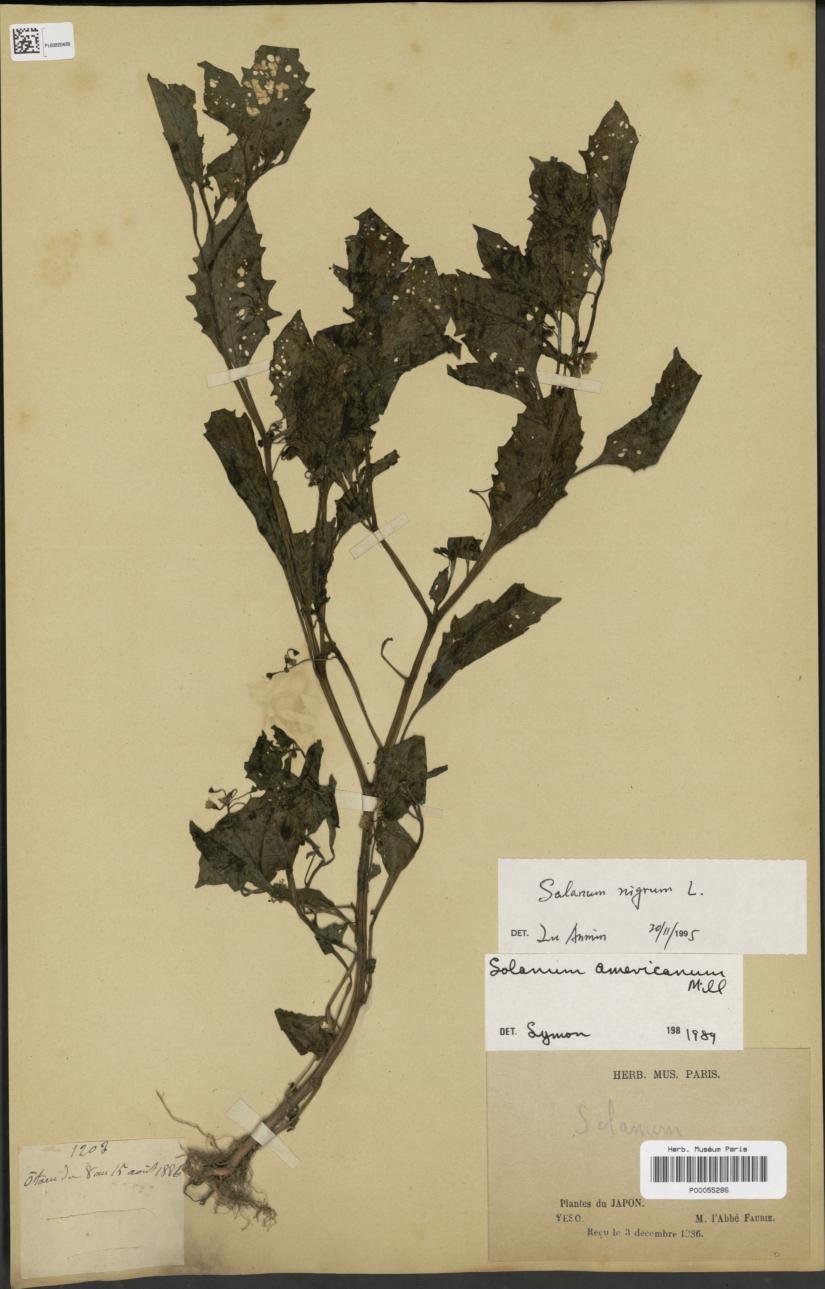 Solanum nigrum L.
DET. Lu Anmin 20/11/1995
Solanum americanum
Mill
DET. Symon 198 1984
HERB. MUS. PARIS.
Solanum
Herb. Muséum Paris
P00055286
Plantes du JAPON.
YESO. M. l'Abbé FAURIE.
Reçu le 3 decembre 1886.
1208
du 8 au 15 août 1886